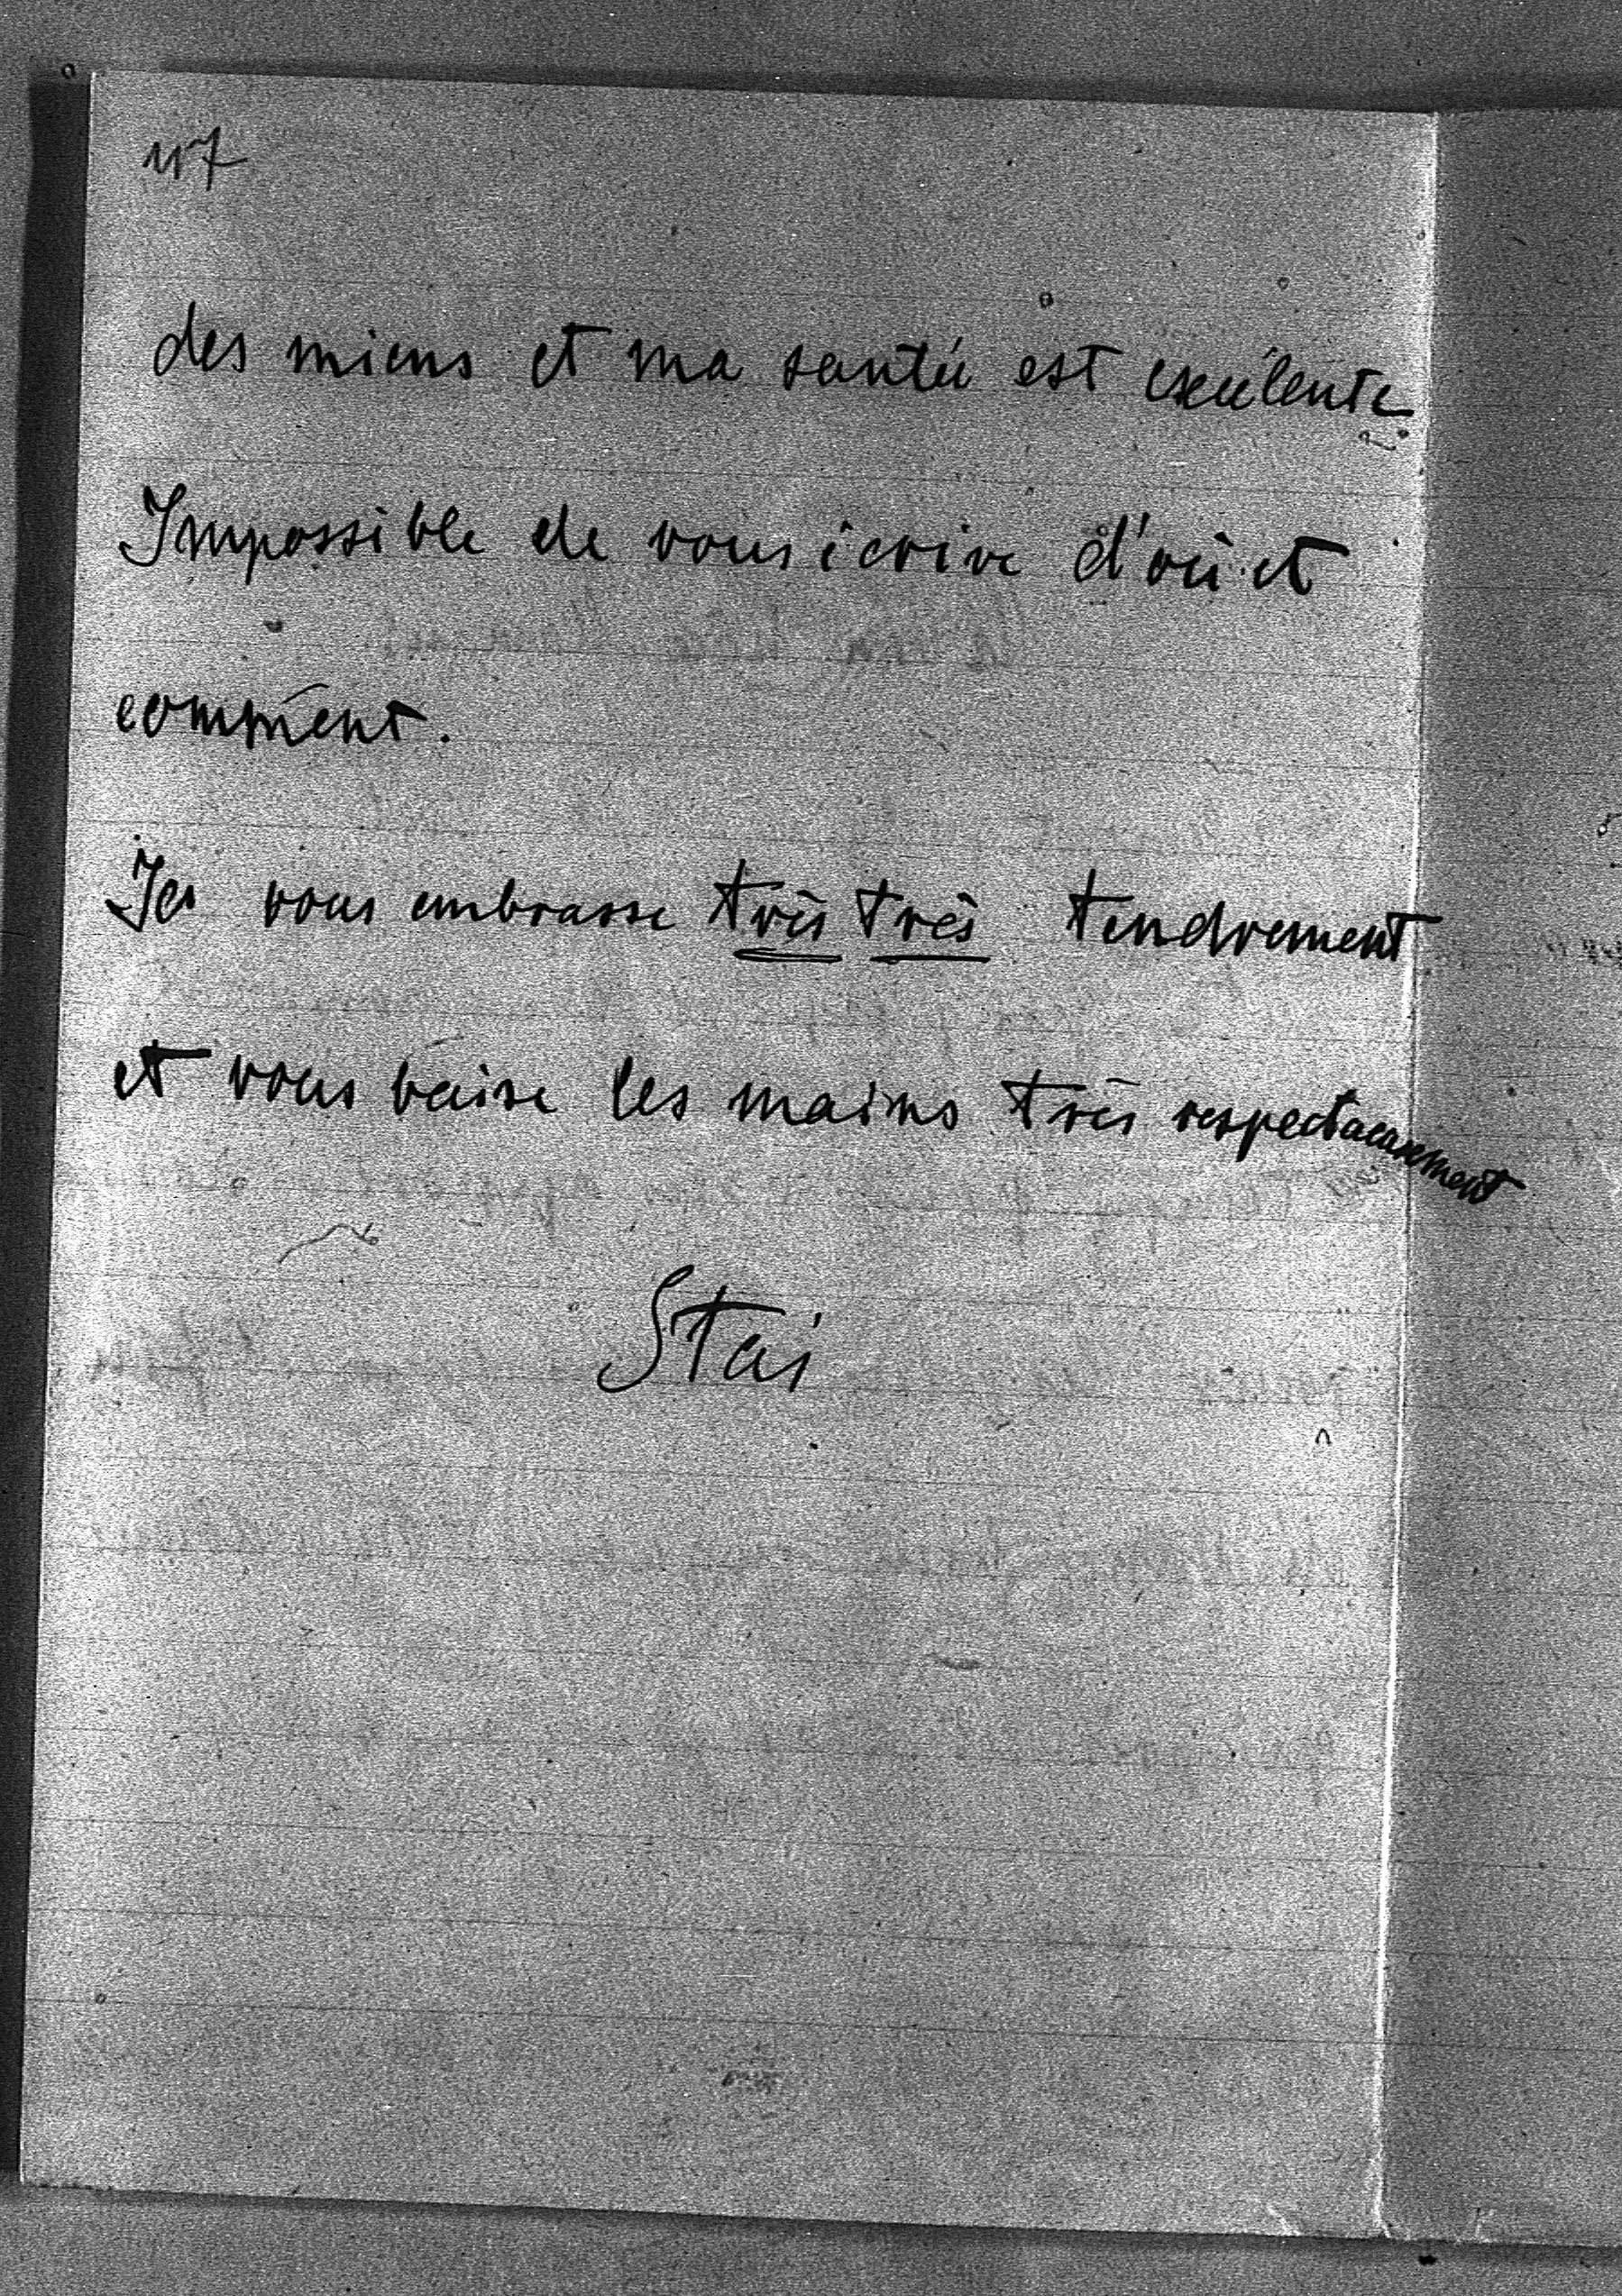 117
des miens et ma santé est excélente
Impossible de vous écrire d'où et
comment.
Je vous embrasse très très tendrement
et vous baise les mains très respectueusement
Stas